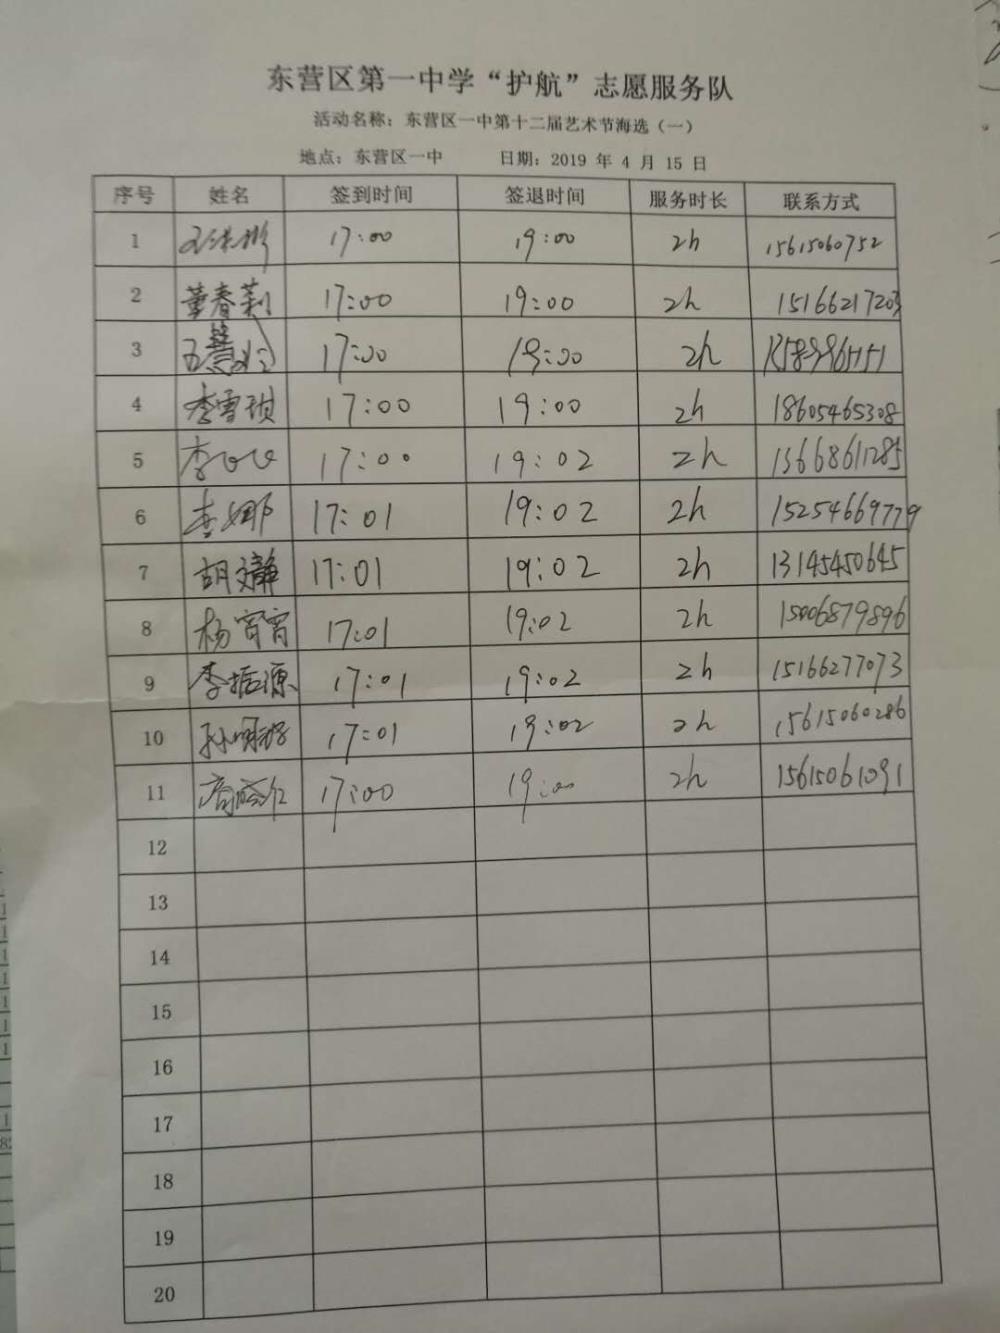 东营区第一中学“护航”志愿服务队
活动名称：东营区一中第十二届艺术节海选（一）
地点：东营区一中 日期：2019 年 4 月 15 日
序号 姓名 签到时间 签退时间 服务时长 联系方式
1 17:00 19:00 2h 15615060752
2 董春莉 17:00 19:00 2h 15166217203
3 17:00 19:00 2h
4 李雪琪 17:00 19:00 2h 18605465308
5 李 17:00 19:02 2h 13668611285
6 李娜 17:01 19:02 2h 15254669779
7 胡 17:01 19:02 2h 13145450645
8 杨宵宵 17:01 19:02 2h 15006879896
9 李振源 17:01 19:02 2h 15166277073
10 孙 17:01 19:02 2h 15615060286
11 17:00 19:00 2h 15615061091
12
13
14
15
16
17
18
19
20